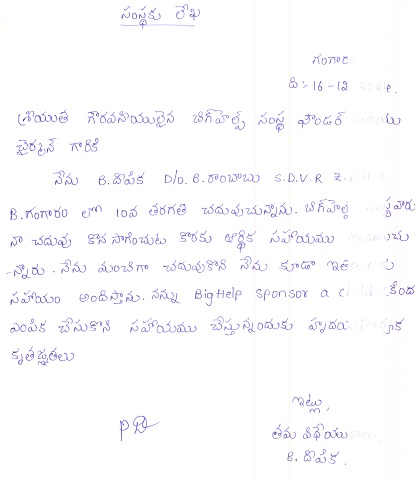 సంస్థకు లేఖ
గంగారం
ది:-16-12
శ్రీయుత గౌరవనీయులైన బిగ్‌హెల్ప్ సంస్థ ఫౌండర్
చైర్మన్ గారికి
నేను B.దీపిక D/o. B.రాంబాబు S.D.V.R Z.P.H.S
B.గంగారం లో 10వ తరగతి చదువుచున్నాను. బిగ్‌హెల్ప్ సంస్థవారు
నా చదువు కొనసాగించుట కొరకు ఆర్థిక సహాయము
-న్నారు. నేను మంచిగా చదువుకొని నేను కూడా ఇతరులకు
సహాయం అందిస్తాను. నన్ను BigHelp sponsor a child క్రింద
ఎంపిక చేసుకొని సహాయము చేస్తున్నందుకు హృదయపూర్వక
కృతజ్ఞతలు
ఇట్లు,
తమ విధేయు
B. దీపిక.